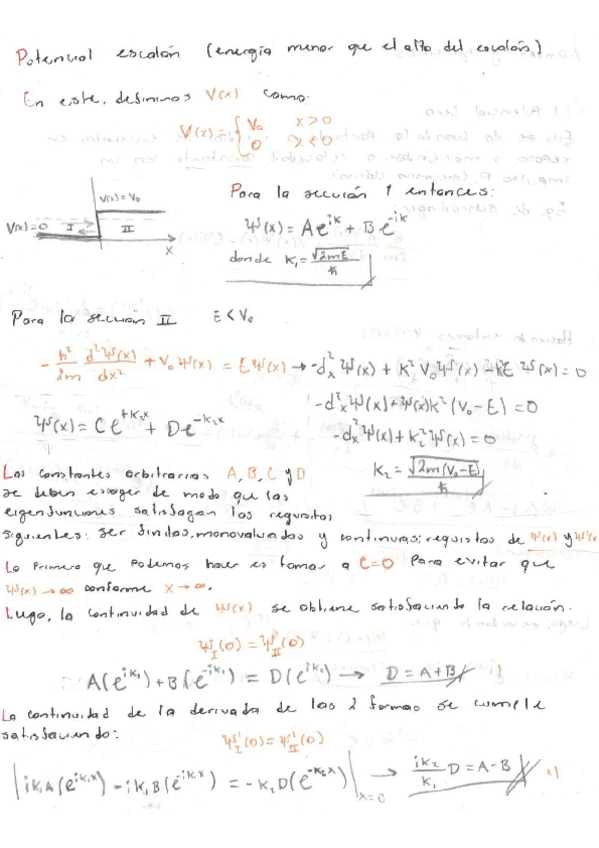 Potencial escalón (energía menor que el alto del escalón)
En este, definimos V(x) como:
V(x) = { V₀ x > 0
0 x < 0
V(x) = V₀
V(x) = 0 I II
x
Para la sección 1 entonces:
Ψ(x) = A e^{ik} + B e^{-ik}
donde K₁ = √(2mE) / ħ
Para la sección II E < V₀
-ħ²/2m d²Ψ(x)/dx² + V₀Ψ(x) = EΨ(x) → -d²ₓΨ(x) + K²V₀Ψ(x) - k²E Ψ(x) = 0
-d²ₓΨ(x) + Ψ(x)k²(V₀ - E) = 0
Ψ(x) = C e^{+k₂x} + D e^{-k₂x}
-d²ₓΨ(x) + k₂²Ψ(x) = 0
K₂ = √(2m(V₀ - E)) / ħ
Las constantes arbitrarias A, B, C y D
se deben escoger de modo que las
eigenfunciones satisfagan los requisitos
siguientes: ser finitas, monovaluadas y continuas; requisitos de Ψ(x) y Ψ'(x)
Lo primero que podemos hacer es tomar a C=0 para evitar que
Ψ(x) → ∞ conforme x → ∞.
Luego, la continuidad de Ψ(x) se obtiene satisfaciendo la relación.
Ψ_I(0) = Ψ_II(0)
A(e^{ik₁}) + B(e^{-ik₁}) = D(e^{ik₂}) → D = A + B 1)
La continuidad de la derivada de las 2 formas se cumple
satisfaciendo:
Ψ'_I(0) = Ψ'_II(0)
| ik₁A(e^{ik₁x}) - ik₁B(e^{-ik₁x}) = -k₂D(e^{-k₂x}) |_{x=0} → ik₂/k₁ D = A - B 2)